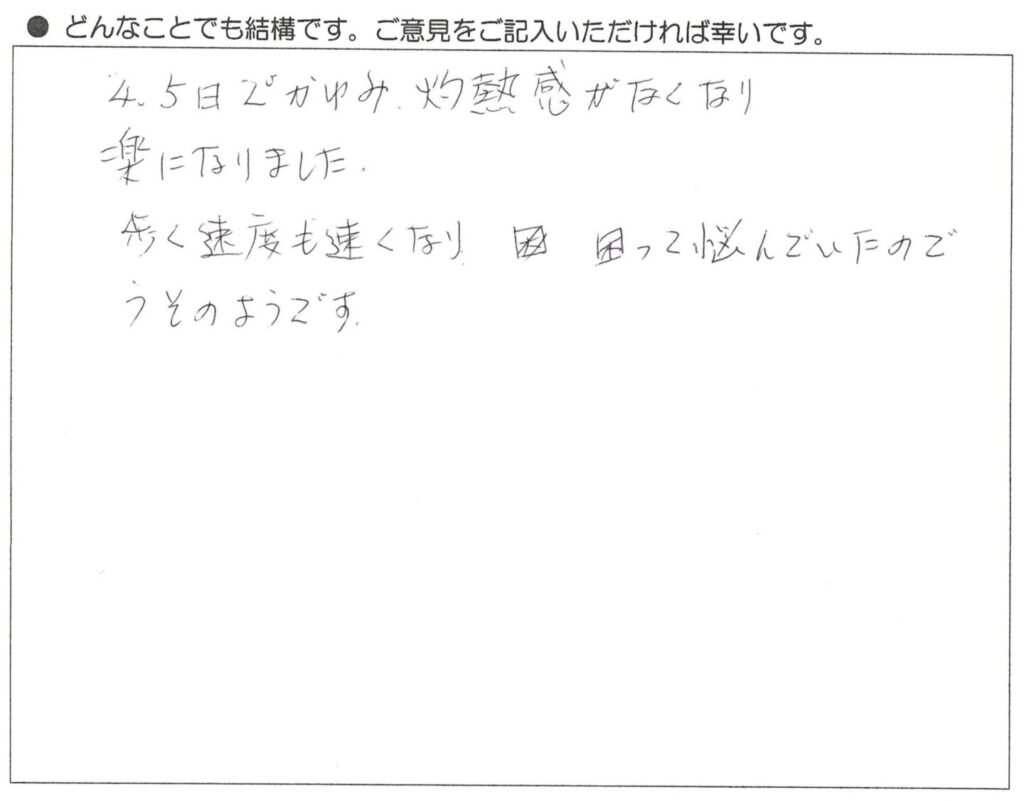 ● どんなことでも結構です。ご意見をご記入いただければ幸いです。
4、5日でかゆみ、灼熱感がなくなり
楽になりました。
歩く速度も速くなり 困 困って悩んでいたので
うそのようです。